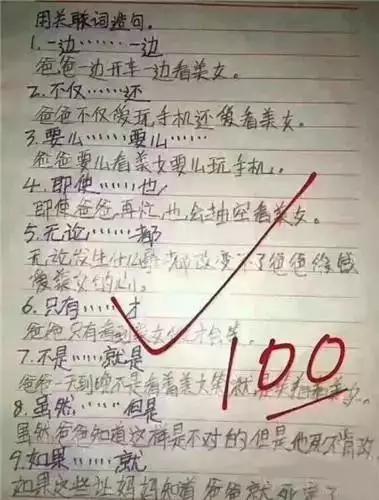 用关联词造句。
1.一边……一边
爸爸一边开车一边看美女。
2.不仅……还
爸爸不仅爱玩手机还爱看美女。
3.要么……要么……
爸爸要么看美女要么玩手机。
4.即使……也
即使爸爸再忙,也会抽空看美女。
5.无论……都
无论发生什么 都改变不了爸爸
爱美女的心。
6.只有……才
爸爸只有看到美女 才会笑。
7.不是……就是
爸爸一天到晚不是看着美女笑就是
8.虽然……但是
虽然爸爸知道这样是不对的但是他
9.如果……就
如果这些让妈妈知道爸爸就死
100